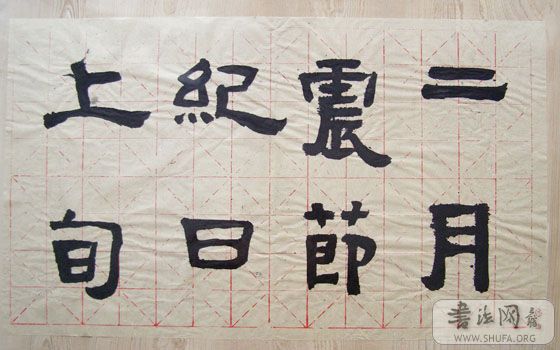 二月
震節
紀日
上旬
书法网
WWW.SHUFA.ORG